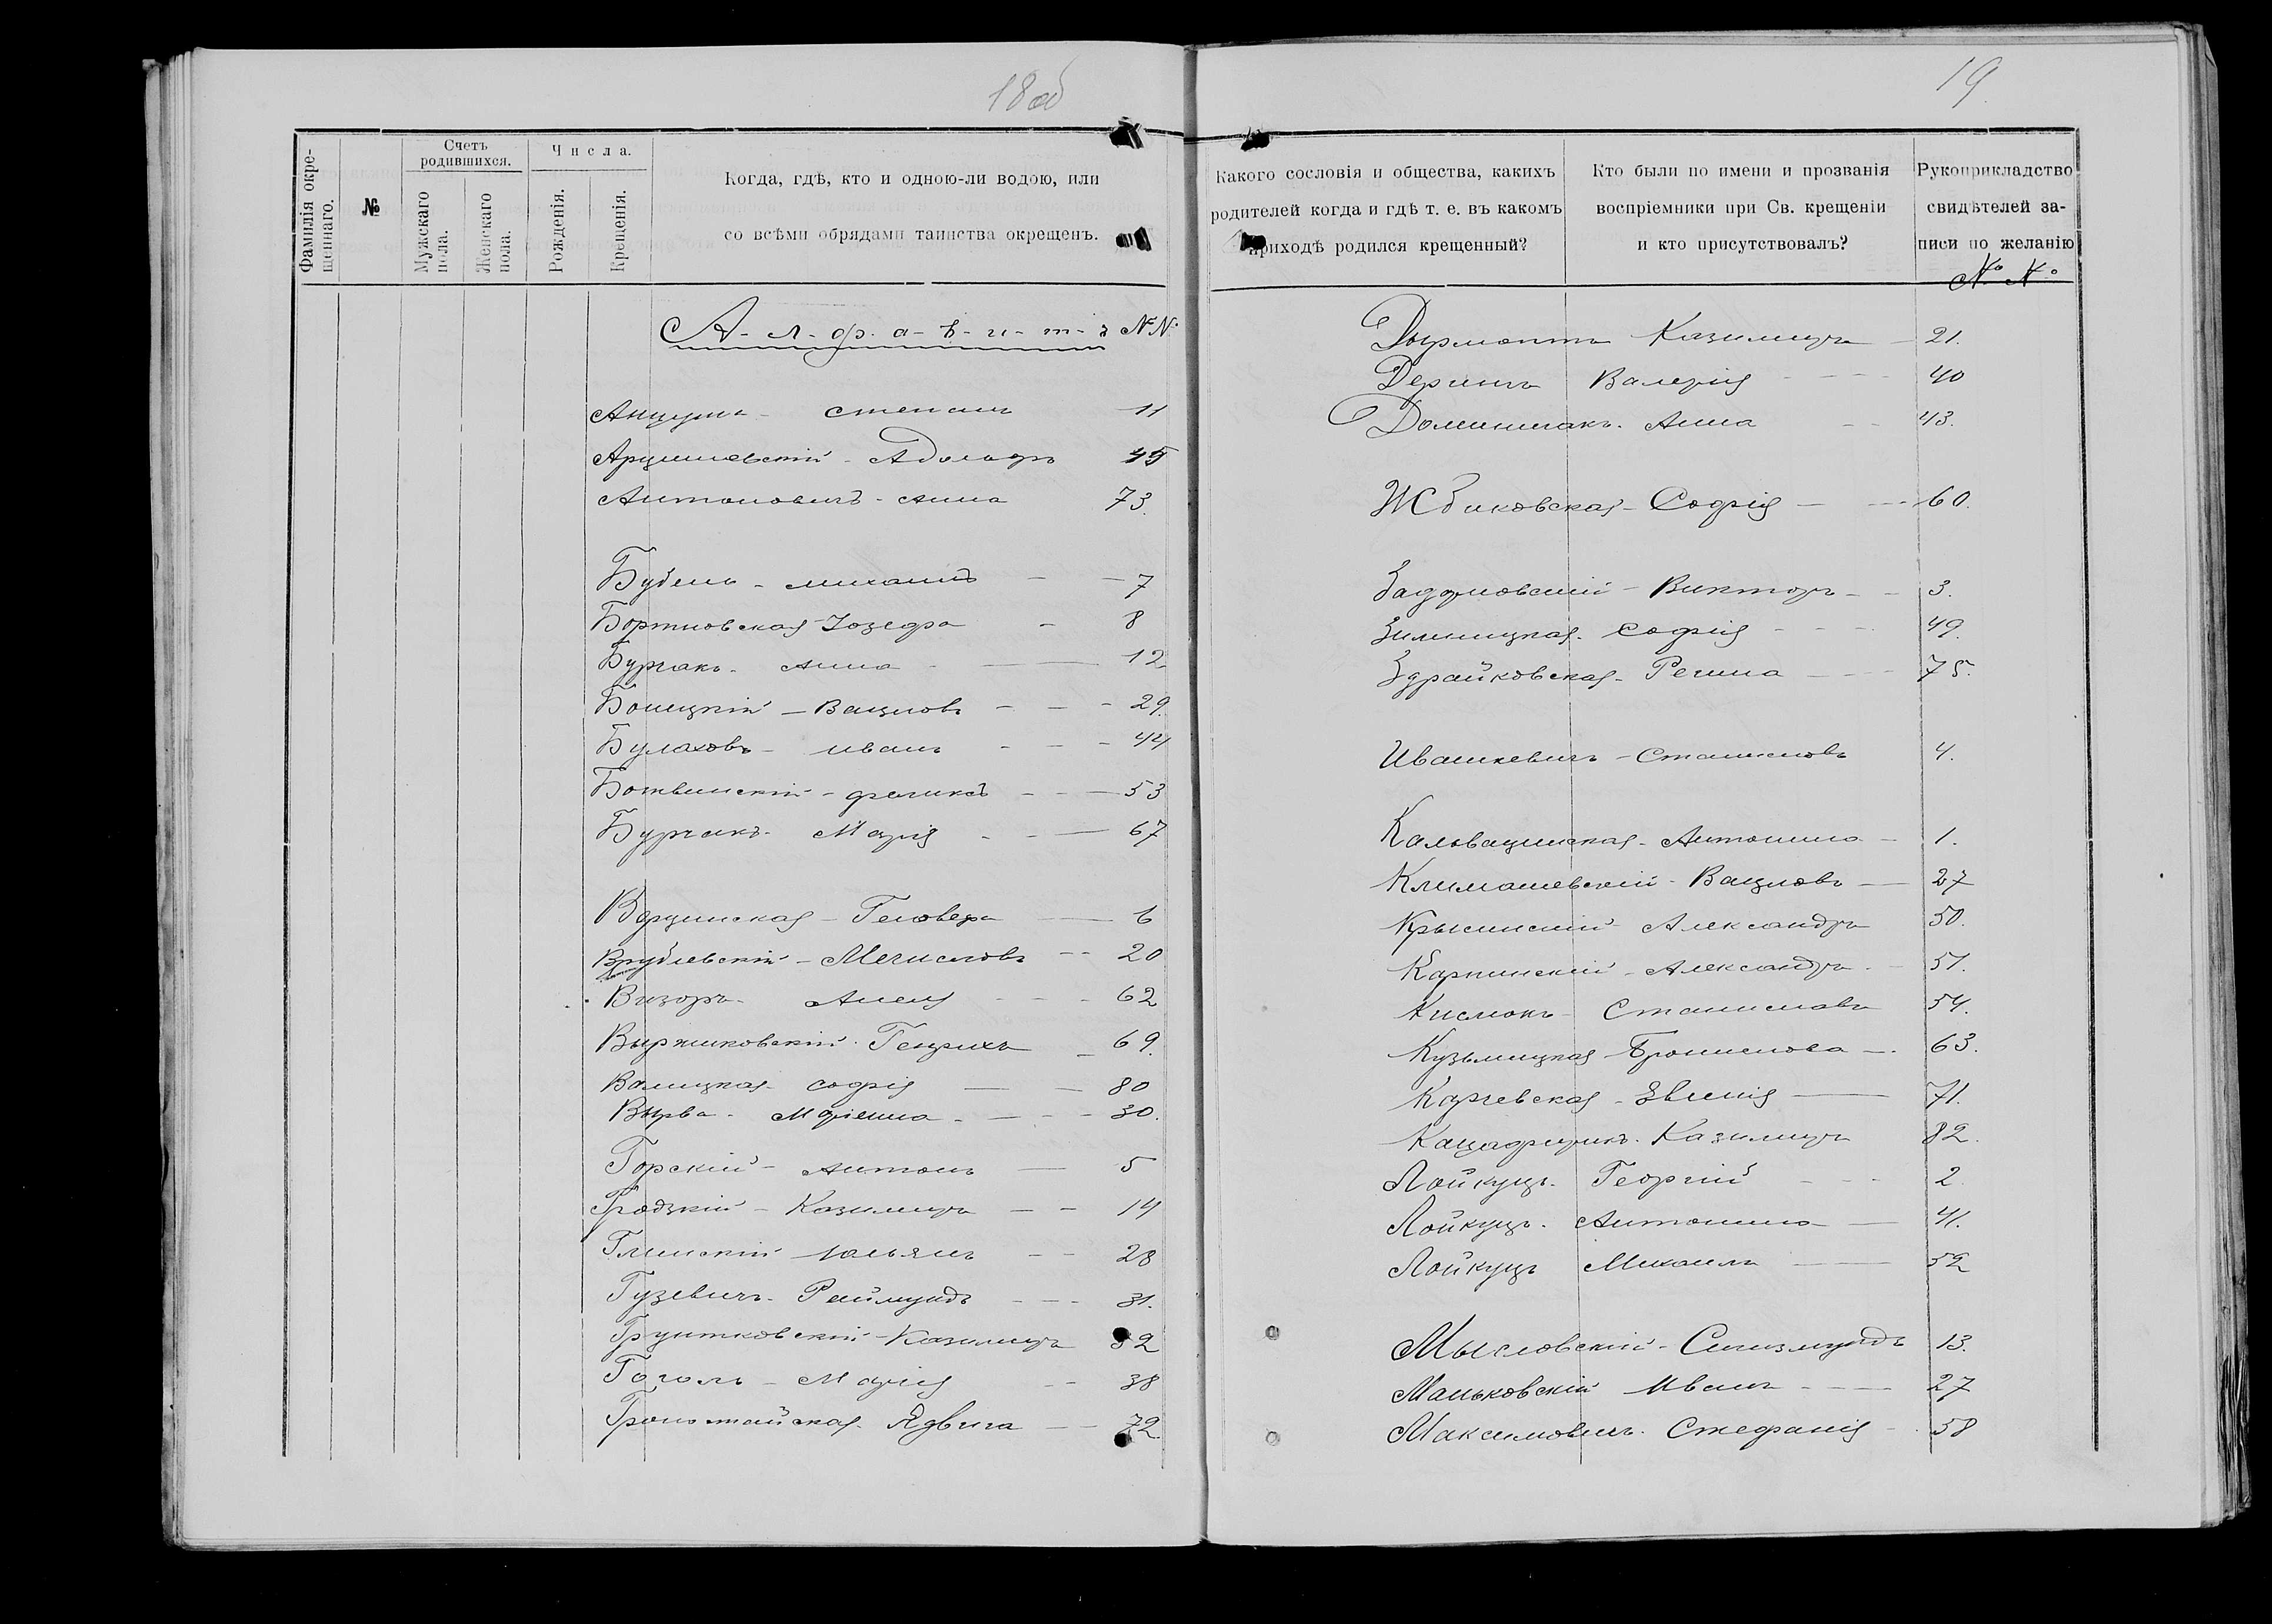 18 об
Фамилія окре-
щеннаго.
№
Счетъ
родившихся.
Мужскаго
пола.
Женскаго
пола.
Числа.
Рожденія.
Крещенія.
Когда, гдѣ, кто и одною-ли водою, или
со всѣми обрядами таинства окрещенъ.
А-л-ф-а-в-и-т-ъ №№
Анцута - Степанъ 11
Арцишевскій - Адольфъ 45
Антоновичъ - Анна 73.
Будень - Михаилъ - - 7
Бортновская Іозефа - 8
Бурчакъ - Анна - - 12
Бонецкій - Вацлавъ - - - 29.
Булаховъ - Иванъ - - - 44
Ботвинскій - Феликсъ - - - 53
Бурчакъ - Марія - - - 67
Варцинская - Геновефа - 6
Врублевскій - Мечиславъ - - 20
Визоръ - Анеля - - - 62
Выржиковскій - Генрихъ - 69.
Валицкая - Софія - - 80
Вырва - Маріянна - - - - 30.
Горскій - Антонъ - 5
Гродзкій - Казимиръ - - 14
Глинскій - Юльянъ - - 28
Гузевичъ - Раймундъ - - - 31.
Грунтковскій - Казимиръ 32
Гоголь - Марія - - 38
Гроностайская - Ядвига - 72
19.
Какого сословія и общества, какихъ
родителей когда и гдѣ т. е. въ какомъ
приходѣ родился крещенный?
Кто были по имени и прозванія
воспріемники при Св. крещеніи
и кто присутствовалъ?
Рукоприкладство
свидѣтелей за-
писи по желанію
№ №
Дырмонтъ Казимиръ - 21.
Деринъ Валерія - - - - 40
Доминчакъ - Анна - - 43.
Жбиковская - Софія - - - 60.
Задарновскій - Викторъ - - 3.
Зилиницкая - Софія - - - - 49.
Здрайковская - Регина - - - 75.
Ивашкевичъ - Станиславъ 4.
Кальвацинская - Антонина - 1.
Климашевскій - Вацлавъ - 27
Крысинскій - Александръ 50.
Карпинскій - Александръ - 51.
Кислюкъ - Станиславъ 54.
Кузьмицкая - Бронислава - 63.
Карчевская - Эвгенія - 71.
Казимиръ 82.
Лойкуцъ - Георгій - - - 2
Лойкуцъ - Антонина - 41.
Лойкуцъ Михаилъ - 52
Мысловскій - Сигизмундъ 13.
Маньковскій Иванъ - - - 27
Максимовичъ - Стефанія - 58